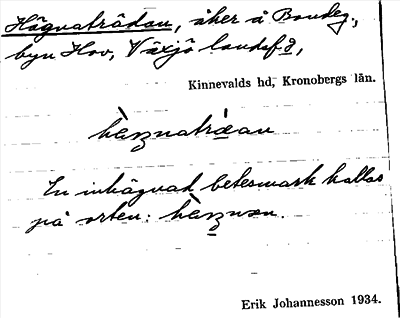 Hägnaträdan, åker å Bondeg.,
byn Hov, Växjö landsfs,
Kinnevalds hd, Kronobergs län.
hàŋnatràdan
En inhägnad betesmark kallas
på orten: hàŋnan.
Erik Johannesson 1934.